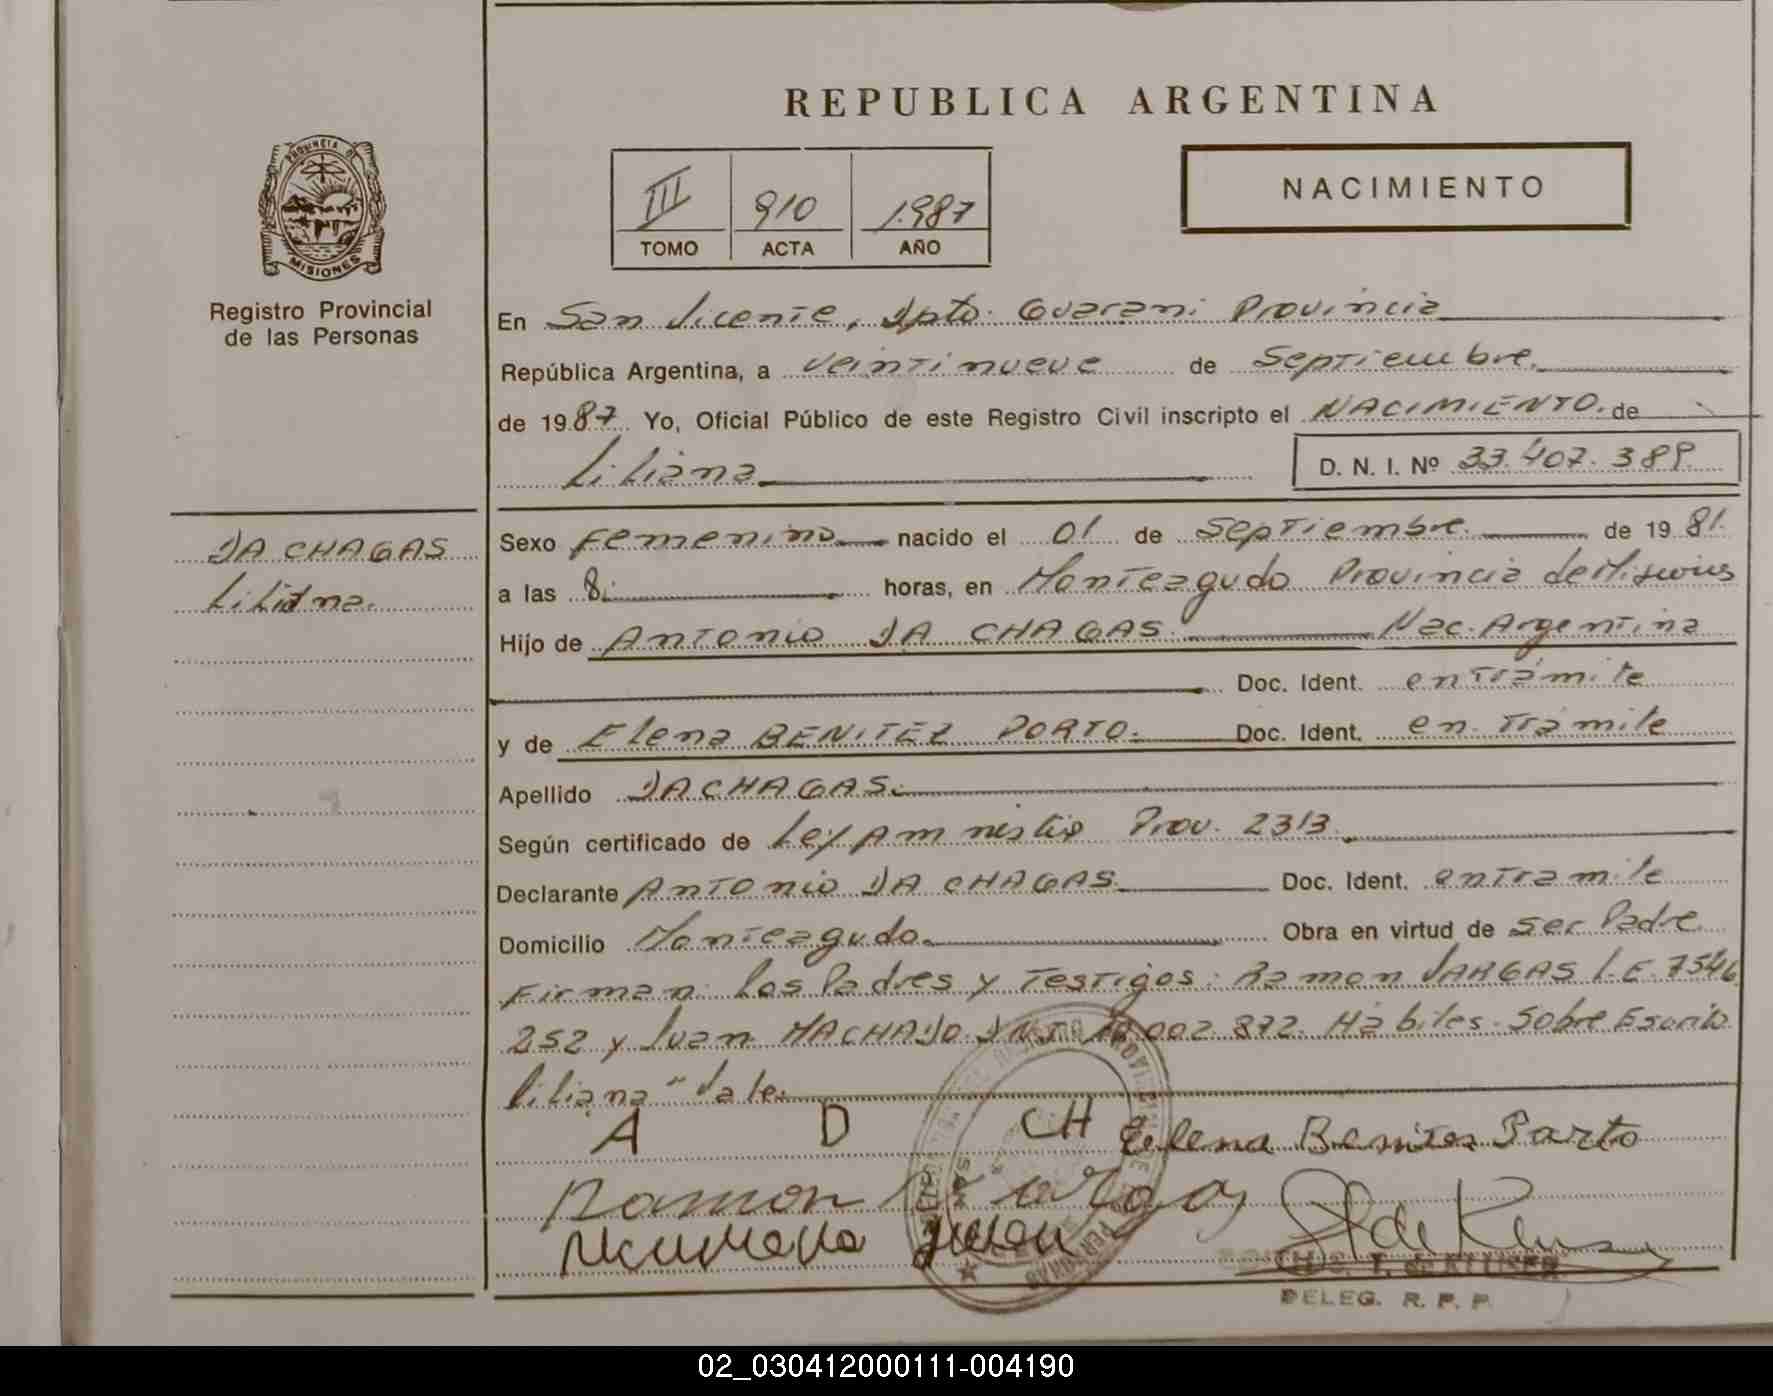 REPUBLICA ARGENTINA
PROVINCIA DE
MISIONES
Registro Provincial
de las Personas
III 910 1987
TOMO ACTA AÑO
NACIMIENTO
En San Vicente, Dpto. Guarani Provincia
República Argentina, a veintinueve de Septiembre.
de 1987 Yo, Oficial Público de este Registro Civil inscripto el NACIMIENTO. de
Liliana D. N. I. Nº 33.407.389
DA CHAGAS
Liliana.
Sexo Femenino nacido el 01 de Septiembre. de 1981.
a las 8. horas, en Monteagudo Provincia de Misiones
Hijo de Antonio DA CHAGAS. Nac. Argentina
Doc. Ident. en trámite
y de Elena BENITEZ PORTO. Doc. Ident. en trámite
Apellido DA CHAGAS.
Según certificado de Ley Amnistia Prov. 2313.
Declarante Antonio DA CHAGAS. Doc. Ident. en tramite
Domicilio Monteagudo. Obra en virtud de ser Padre
Firman: Los Padres y Testigos: Ramon VARGAS L.E. 7546
252 y Juan MACHADO DNI 002.872. Hábiles. Sobre Escrito
liliana" Vale.
A D CH Eelena Benites Porto
Ramon
DELEG. R. P. P.
02_030412000111-004190